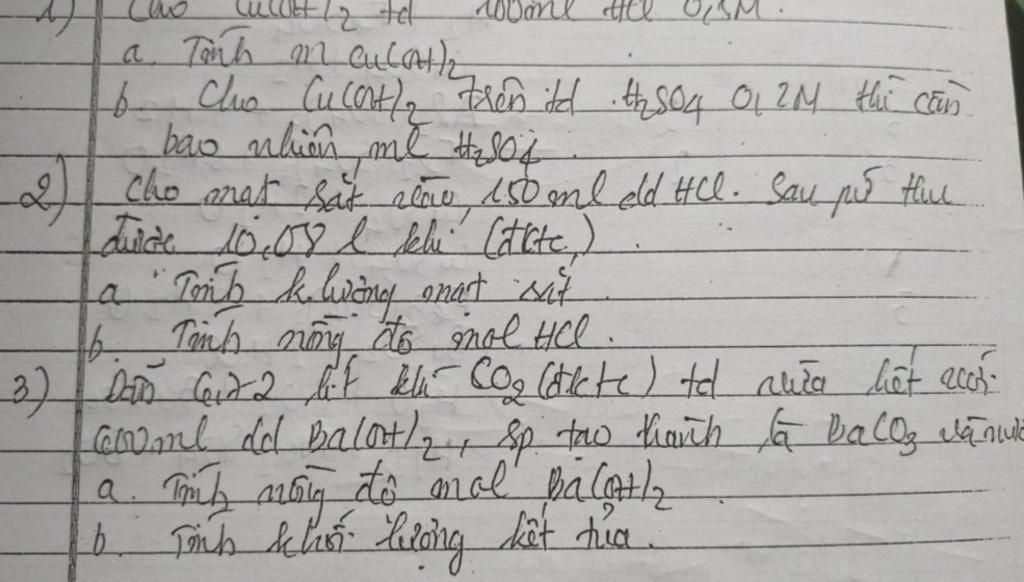 1) Cho Cu(OH)2 td 100ml HCl 0,5M.
a. Tính m Cu(OH)2
b Cho Cu(OH)2 trên td H2SO4 0,2M thì cần
bao nhiên ml H2SO4.
2) Cho mạt sắt vào 150ml dd HCl. Sau pứ thu
được 10,08 l khí (đktc).
a Tính k.lượng mạt sắt
b. Tính nồng độ mol HCl.
3) Dẫn 6,72 lít khí CO2 (đktc) td vừa hết với
600ml dd Ba(OH)2, sp tạo thành là BaCO3 và nước
a. Tính nồng độ mol Ba(OH)2
b. Tính khối lượng kết tủa.